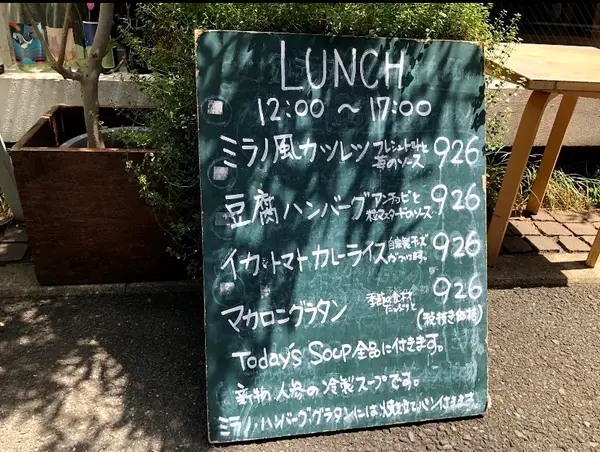 LUNCH
12:00 〜 17:00
ミラノ風カツレツ フレッシュトマトと 苺のソース 926
豆腐ハンバーグ アンチョビと 粒マスタードのソース 926
イカとトマトカレーライス 自家製チーズ がつけます。 926
マカロニグラタン 季節の食材 たっぷりと 926
(税抜き価格)
Today's Soup 全品に付きます。
新物 人参の冷製スープです。
ミラノ、ハンバーグ、グラタンには 焼立てパン付きます。